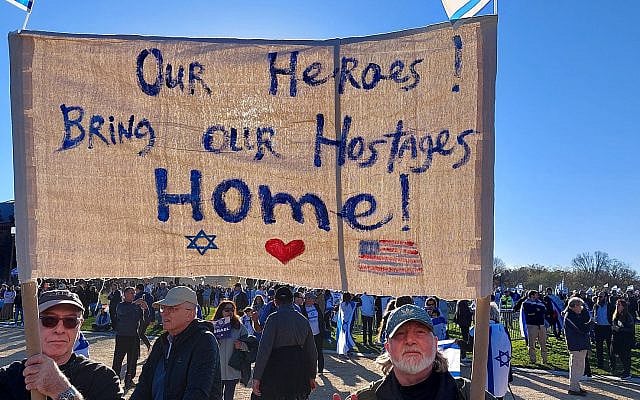 Our Heroes!
BRing OUR Hostages
Home!